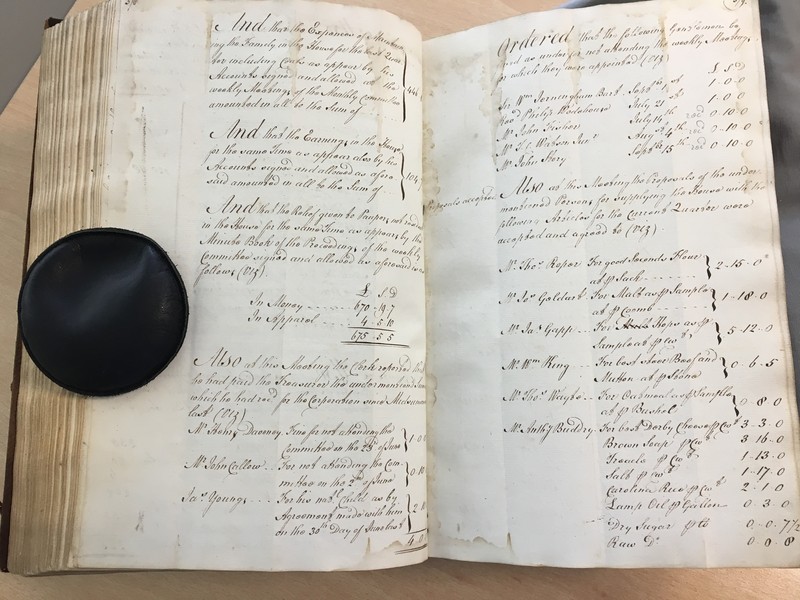 And that the Expences of Maintain
ing the Family in the House for the last Quar
ter including Cloaths as appear by the
Accounts signed and allowed at the
weekly Meetings of the Monthly Committee
amounted in all to the Sum of
And that the Earnings in the House
for the same Time as appear also by the
Accounts signed and allowed as afore
said amounted in all to the Sum of
And that the Relief given to Paupers not
in the House for the same Time as appears by the
Minute Book of the Proceedings of the weekly
Committee signed and allowed as aforesaid
follows (Viz)
£ S D
In Money 670 - 19 - 7
In Apparel 4 5 10
675 5 5
Also at this Meeting the Clerk reported that
he had paid the Treasurer the undermentioned Sums
which he had recd for the Corporation since Midsummer
last (Viz)
Mr Henry Fine for not attending the
Committee on the 23d of June
Mr John Callow For not attending the Com-
mittee on the 2d of June
Jas Young For his natl Child as by
Agreement made with him
on the 30th Day of June last
Ordered that the following Gentlemen be
fined as under for not attending the weekly Meetings
for which they were appointed (Viz)
£ S D
Sir Wm Jerningham Bart Septr 1st 1-0-0
Revd Philip Wodehouse July 21st 1-0-0
Mr John July 14th red 0-10-0
Mr Watson Augt 4th red 0-10-0
Mr John Story Septr 15th red 0-10-0
Proposals accepted
Also at this Meeting the Proposals of the under
mentioned Persons for supplying the House with the
following Articles for the Current Quarter were
accepted and agreed to (Viz)
Mr Thos Roper For good Seconds Flour
at p Sack 2-15-0
Mr Jos Goldart For Malt as p Sample
at p Coomb 1-18-0
Mr Jas Gapp For Hops as p
Sample at p Cwt 5-12-0
Mr Wm King For best Beef and
Mutton at p Stone 0-6-5
Mr Thos Wright For Oatmeal as p Sample
at p Bushel 0 8 0
Mr Anthy Buddry For best Derby Cheese p Cwt 3-3-0
Brown Soap p Cwt 3 16-0
Treacle p Cwt 1-13-0
Salt p Cwt 1-17-0
Carolina Rice p Cwt 2-1 0
Lamp Oil p Gallon 0-3-0
Dry Sugar p lb 0-0-7½
Raw Do 0-0-8